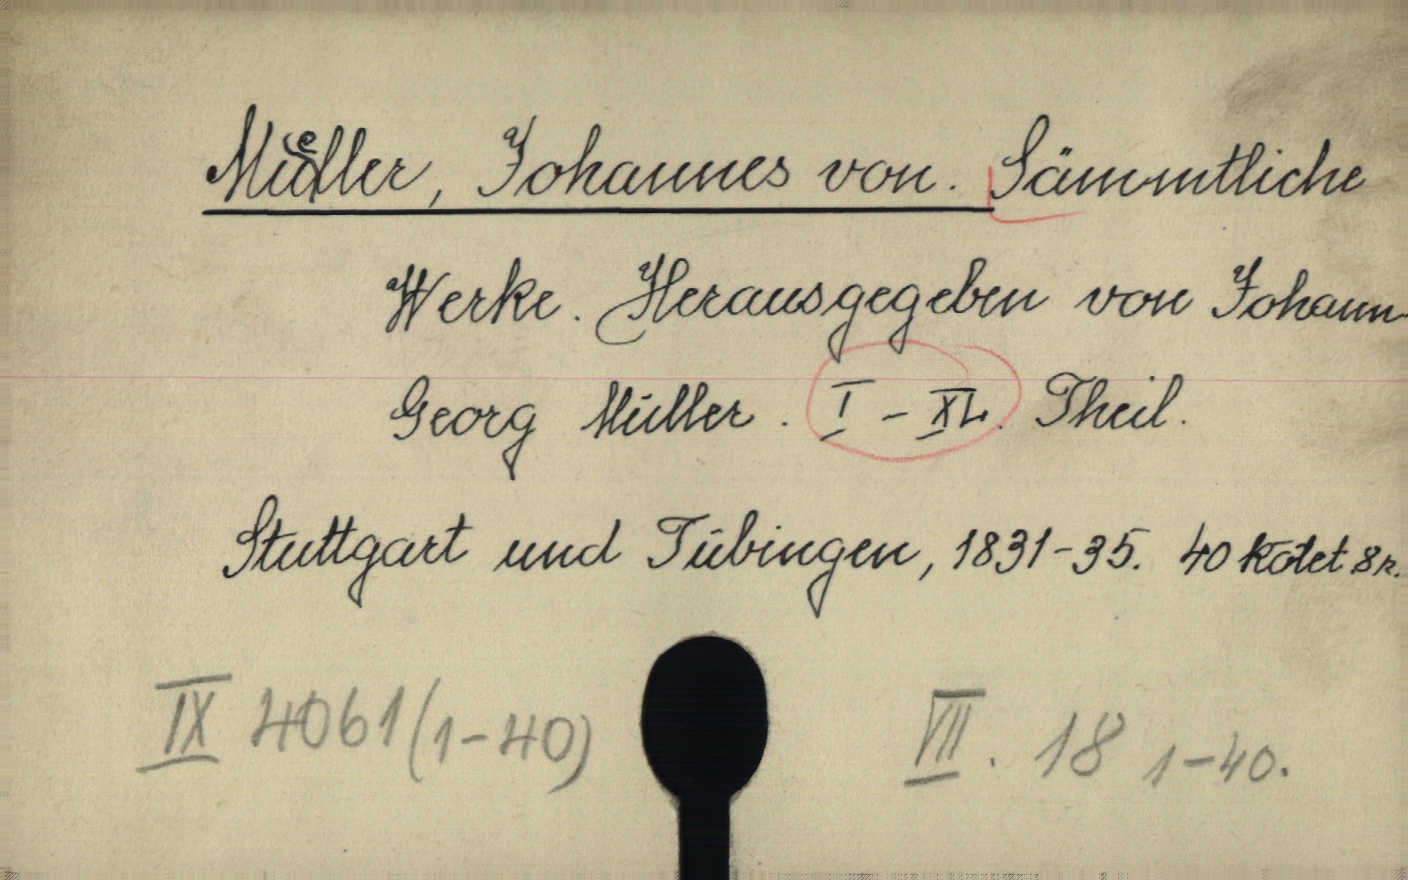 Müller, Johannes von. Sämmtliche
Werke. Herausgegeben von Johann
Georg Müller. I - XL. Theil.
Stuttgart und Tübingen, 1831-35. 40 kötet 8r.
IX 4061 (1-40) VII. 18 1-40.